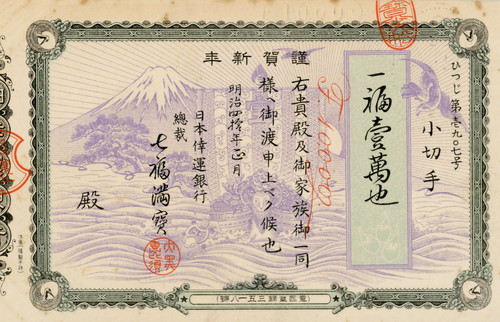 謹賀新年
ひつじ第壹九〇七号
小切手
一福壹萬也
右貴殿及御家族御一同
様へ御渡申上べク候也
明治四拾年正月
日本倖運銀行
總裁
七福満寳
殿